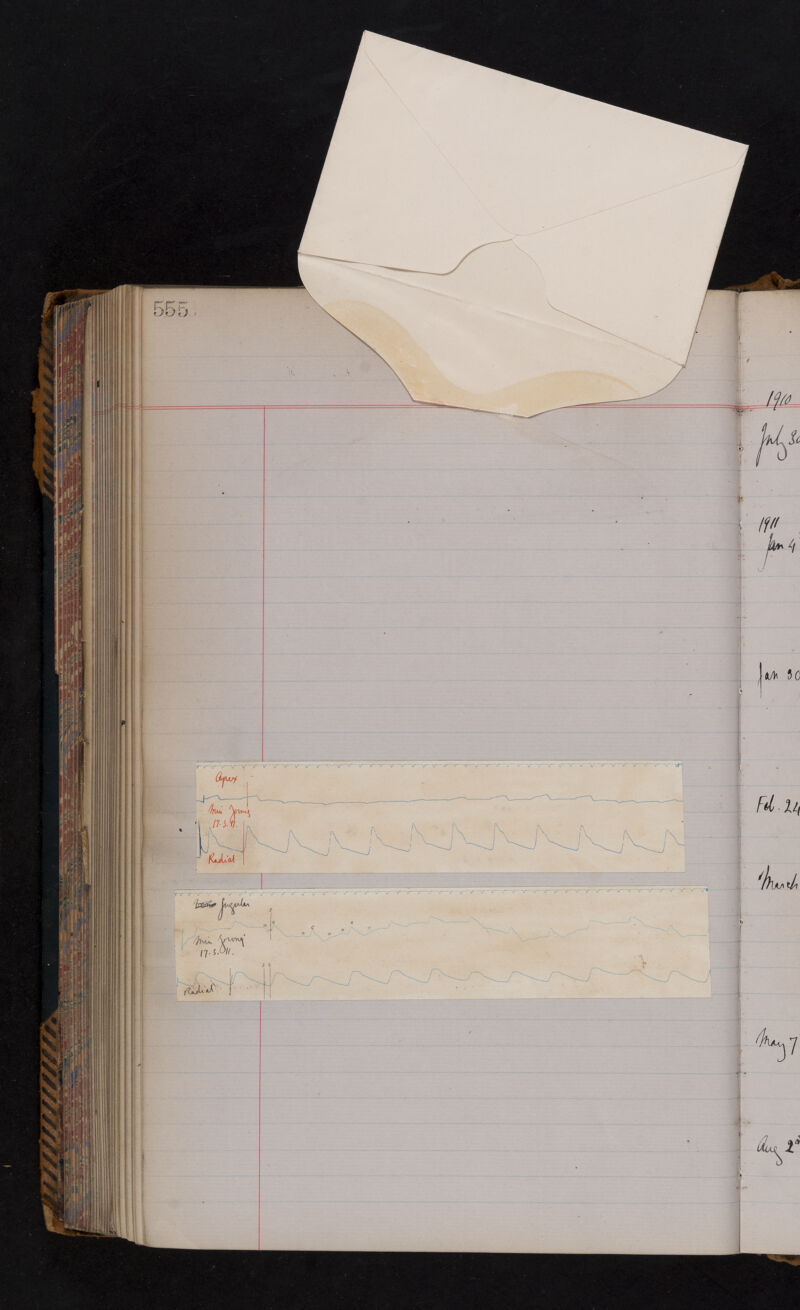 555
Apex
Miss
17.3.11.
Radial
Jugular
Miss
17.3.11.
Radial
1910
July 30
1911
Jan 4
Jan 30
Feb. 24
March
May 7
Aug 2